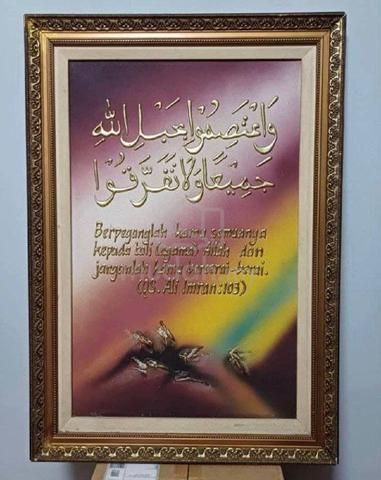 وَاعْتَصِمُوا بِحَبْلِ اللهِ
جَمِيعًا وَلَا تَفَرَّقُوا
Berpeganglah kamu semuanya
kepada tali (agama) Allah dan
janganlah kamu bercerai-berai.
(QS. Ali Imran:103)